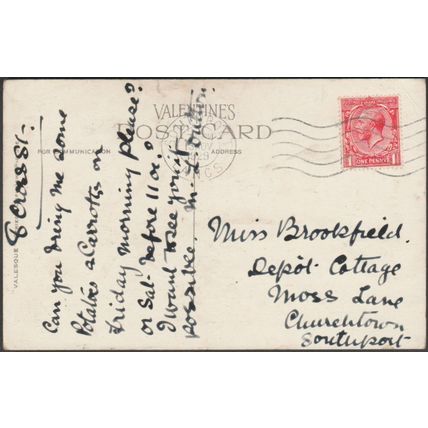 VALENTINE'S
POST CARD
FOR COMMUNICATION
ADDRESS
VALESQUE
8 Cross St.
Can you bring me some
Potatoes & Carrotts on
Friday morning please?
or Sat- before 11 oc?
I want to see you if
possible. M.
ONE PENNY
1 1
Miss Brookfield.
Depôt Cottage
Moss Lane
Churchtown
Southport